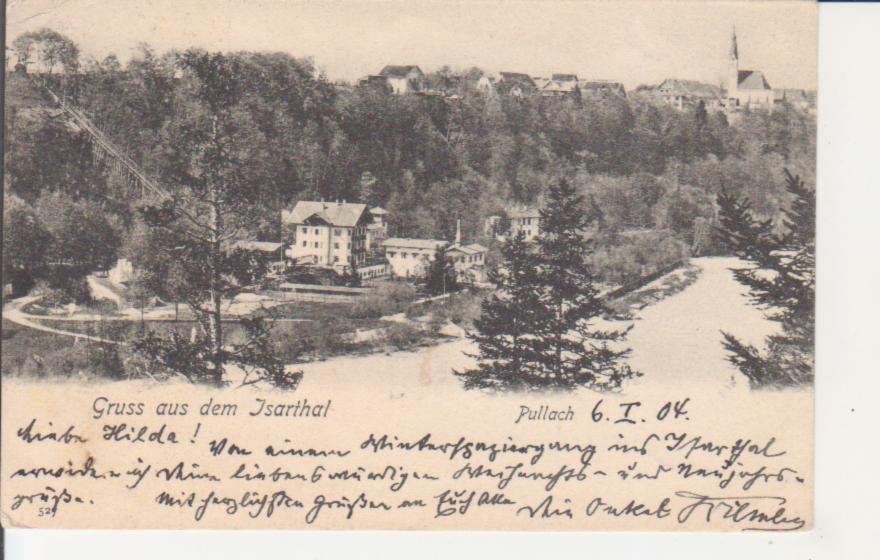 Gruss aus dem Isarthal
Pullach 6. I. 04.
Liebe Hilda! Von einem Winterspaziergang ins Isarthal
erwidere ich Deine liebenswürdigen Weihnachts- und Neujahrs-
grüße. Mit herzlichsten Grüßen an Euch Alle Dein Onkel
52